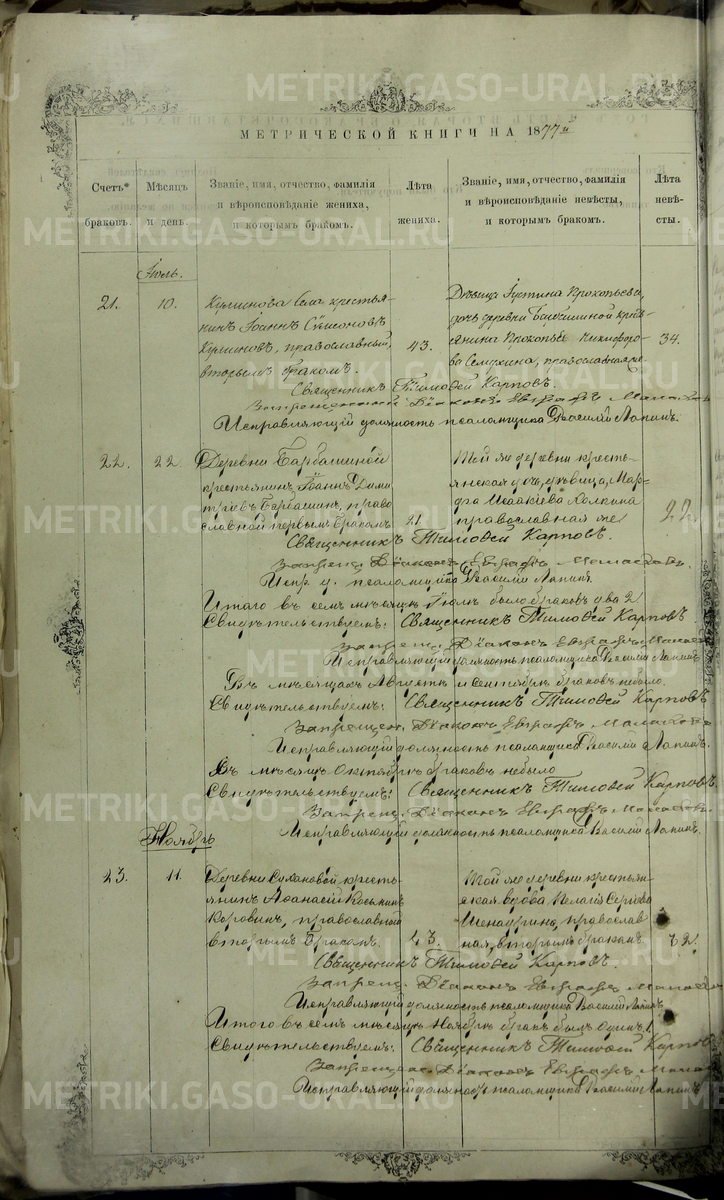 МЕТРИЧЕСКОЙ КНИГИ НА 1877й
Счетъ браковъ.
Мѣсяцъ и день.
Званіе, имя, отчество, фамилія и вѣроисповѣданіе жениха, и которымъ бракомъ.
Лѣта жениха.
Званіе, имя, отчество, фамилія и вѣроисповѣданіе невѣсты, и которымъ бракомъ.
Лѣта невѣсты.
Іюль.
21. 10.
села крестья-
нинъ Іоаннъ Сѵмеоновъ
православный,
вторымъ бракомъ. 43.
Дѣвица Іустина Прокопьева,
дочь деревни кре-
Прокопья Никифоро-
ва православная 34.
Священникъ Тимоѳей Карповъ.
Запрещенный Діаконъ Евграфъ
Исправляющій должность псаломщика Василій Лапинъ.
22. 22.
Деревни Барбашиной
крестьянинъ Іоаннъ Дими
тріевъ Барбашинъ, право
славной первымъ бракомъ 21
Той же деревни кресть-
янская дочь, дѣвица, Мар-
ѳа Исаакіева
православная же 22
Священникъ Тимоѳей Карповъ.
Запрещ. Діаконъ Евграфъ
Испр. д. псаломщика Василій Лапинъ
Итого въ семъ мѣсяцѣ Іюлѣ было браковъ два 2
Свидѣтельствуемъ: Священникъ Тимоѳей Карповъ
Запрещ. Діаконъ Евграфъ
Исправляющій должность псаломщика Василій Лапинъ
Въ мѣсяцахъ Августѣ и Сентябрѣ браковъ небыло.
Свидѣтельствуемъ: Священникъ Тимоѳей Карповъ
Запрещен. Діаконъ Евграфъ
Исправляющій должность псаломщика Василій Лапинъ.
Въ мѣсяцѣ Октябрѣ браковъ небыло
Свидѣтельствуемъ: Священникъ Тимоѳей Карповъ.
Запрещ. Діаконъ Евграфъ
Исправляющій должность псаломщика Василій Лапинъ.
Ноябрь
23. 11.
Деревни Сухановой кресть-
янинъ Аѳанасій Косьминъ
Коровинъ, православный
вторымъ бракомъ. 43.
Той же деревни крестьян-
ская вдова Пелагія Сергѣева
православ
ная, вторымъ бракомъ.
Священникъ Тимоѳей Карповъ.
Запрещ. Діаконъ Евграфъ
Исправляющій должность псаломщика Василій Лапинъ
Итого въ семъ мѣсяцѣ Ноябрѣ бракъ былъ одинъ 1
Свидѣтельствуемъ: Священникъ Тимоѳей Карповъ
Запрещен. Діаконъ Евграфъ
Исправляющій должность псаломщика Василій Лапинъ
METRIKI.GASO-URAL.RU